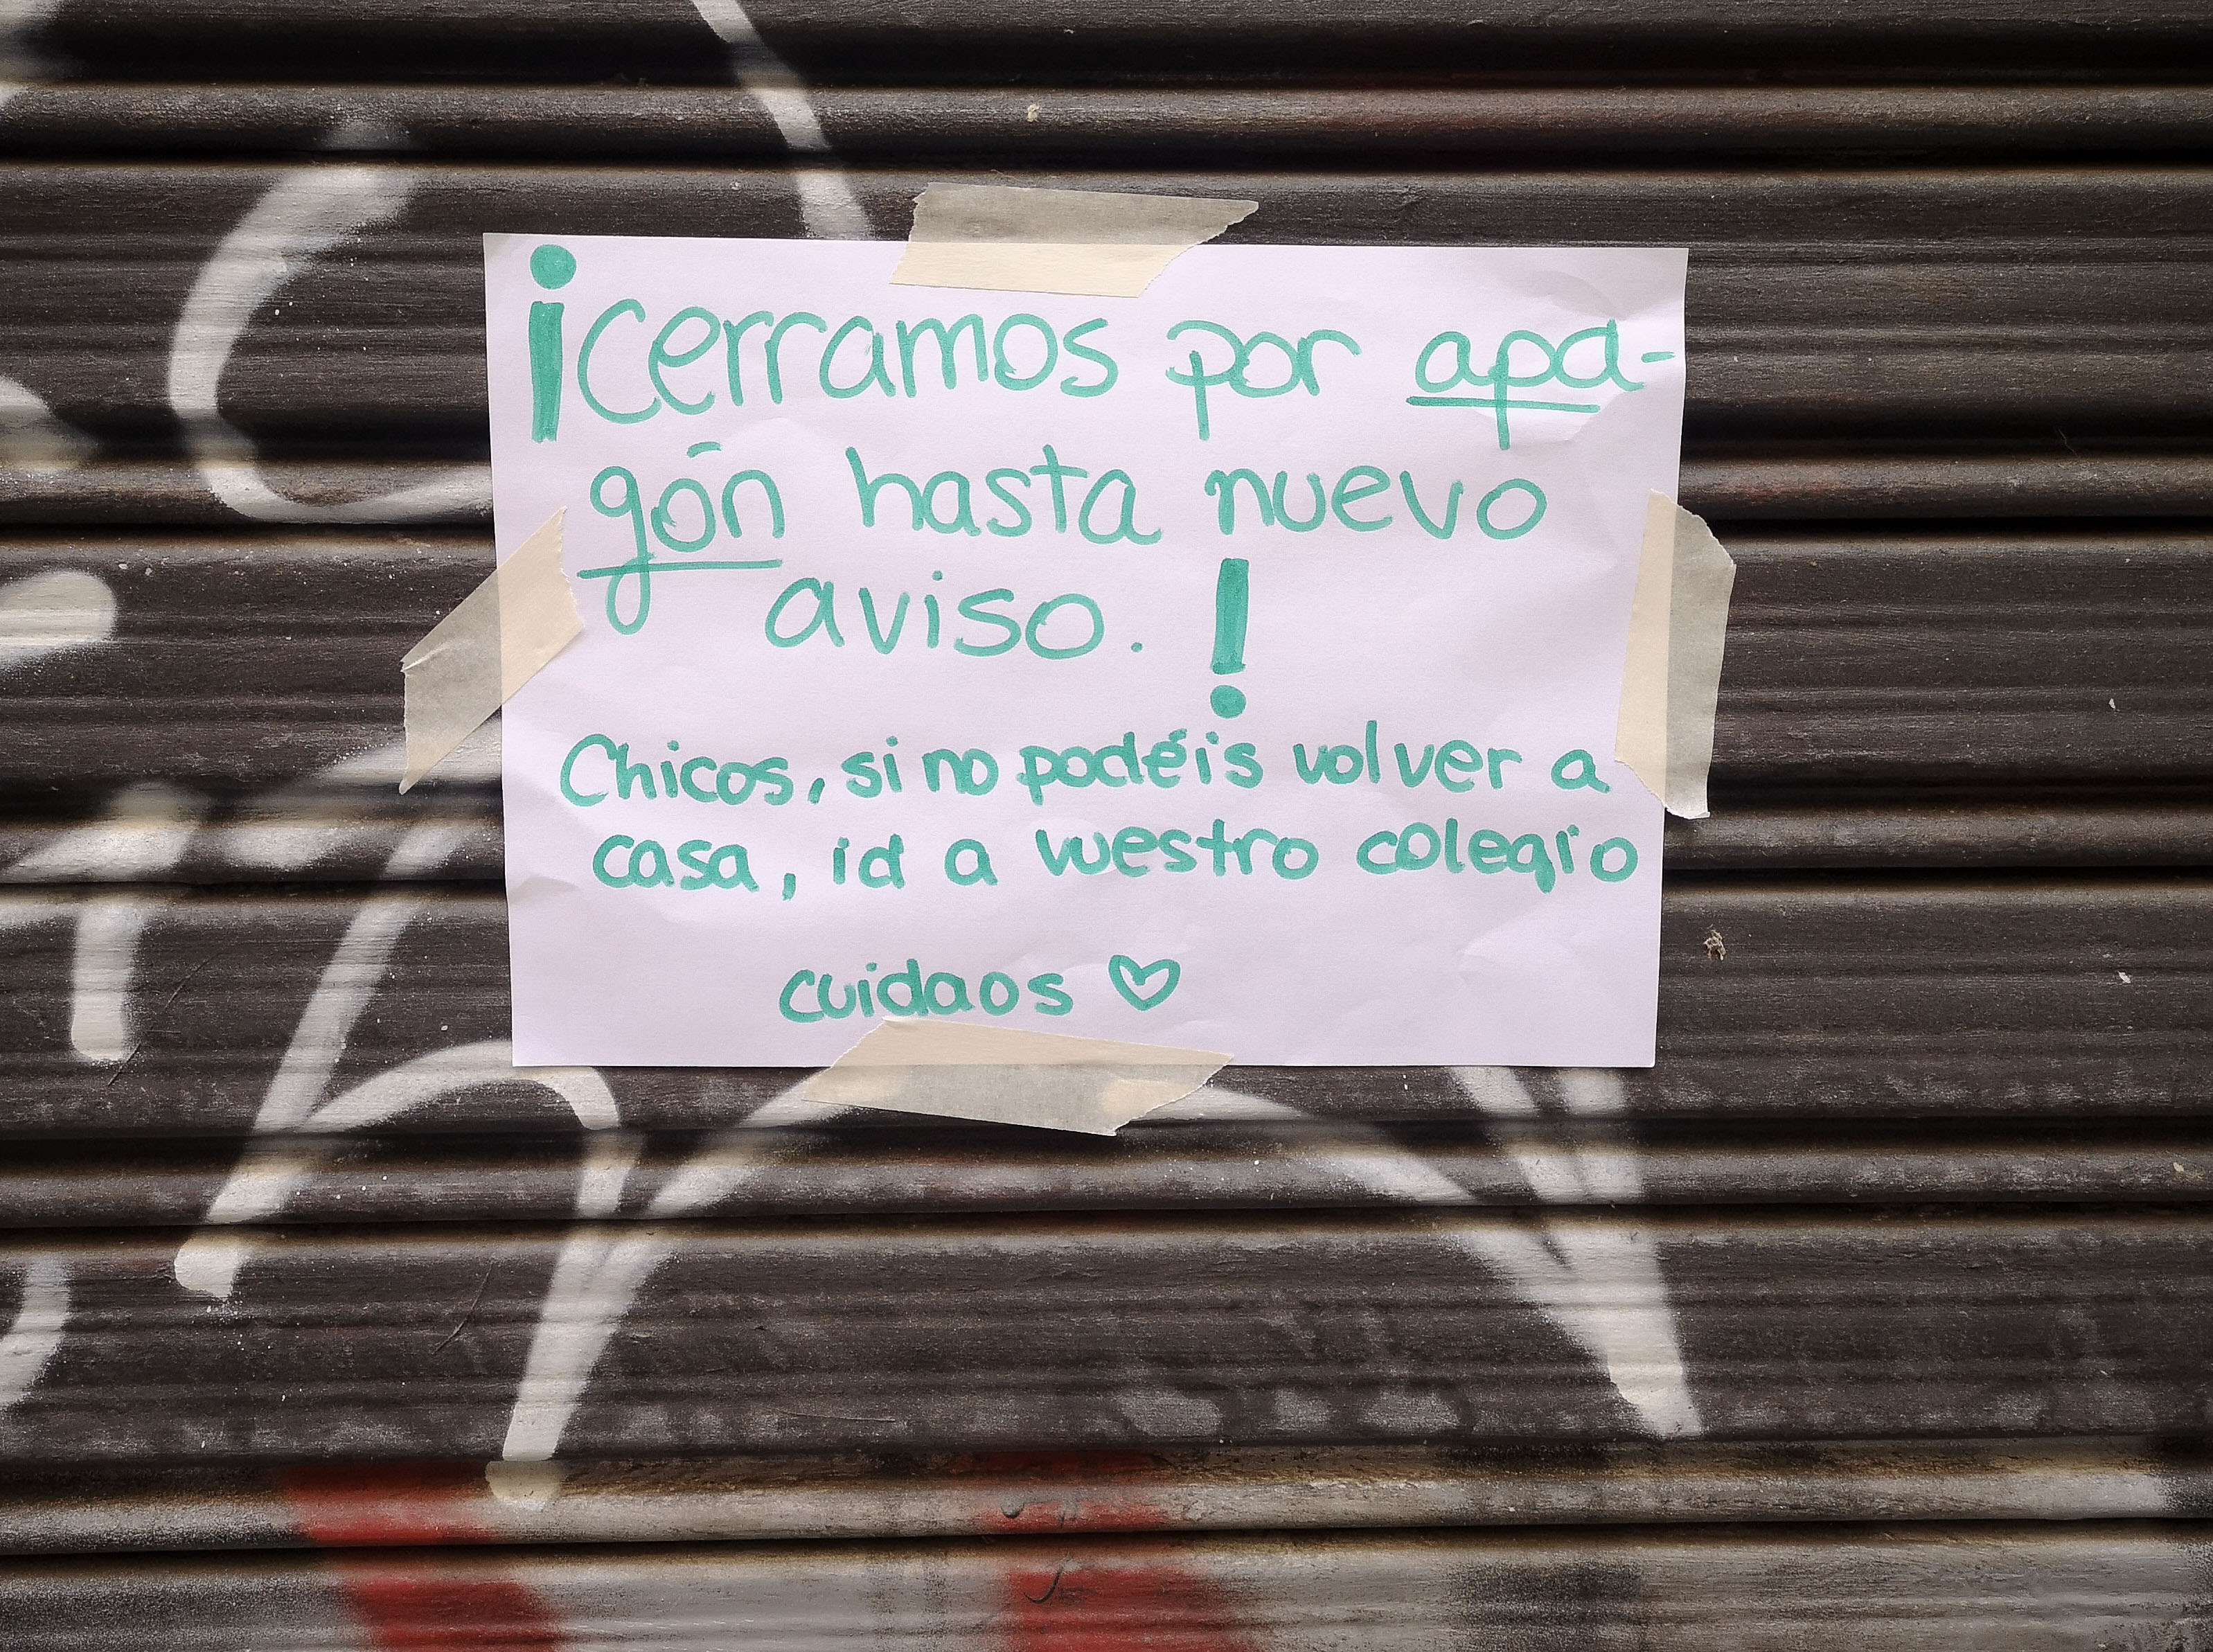 ¡cerramos por apa-
gón hasta nuevo
aviso. !
Chicos, si no podéis volver a
casa, id a vuestro colegio
cuidaos ♡